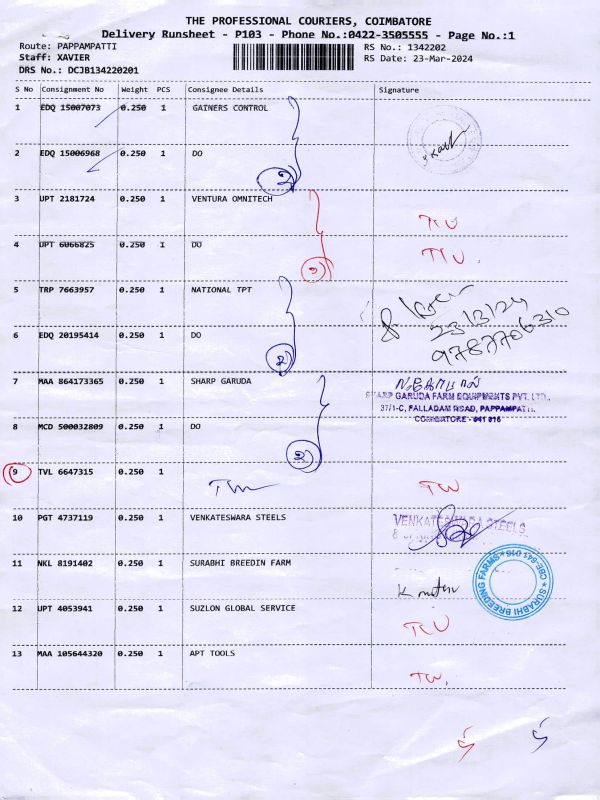 THE PROFESSIONAL COURIERS, COIMBATORE
Delivery Runsheet - P103 - Phone No.:0422-3505555 - Page No.:1
Route: PAPPAMPATTI RS No.: 1342202
Staff: XAVIER RS Date: 23-Mar-2024
DRS No.: DCJB134220201
S No Consignment No Weight PCS Consignee Details Signature
1 EDQ 15007073 0.250 1 GAINERS CONTROL
2 EDQ 15006968 0.250 1 DO
2
3 UPT 2181724 0.250 1 VENTURA OMNITECH
4 UPT 6066825 0.250 1 DO
5 TRP 7663957 0.250 1 NATIONAL TPT
23/3/24
9787706310
6 EDQ 20195414 0.250 1 DO
2
7 MAA 864173365 0.250 1 SHARP GARUDA
SHARP GARUDA FARM EQUIPMENTS PVT. LTD.,
37/1-C, PALLADAM ROAD, PAPPAMPATTI.
COIMBATORE - 641 016
8 MCD 500032809 0.250 1 DO
2
9 TVL 6647315 0.250 1
10 PGT 4737119 0.250 1 VENKATESWARA STEELS
VENKATESWARA STEELS
11 NKL 8191402 0.250 1 SURABHI BREEDIN FARM
SURABHI BREEDING FARMS CBE-641 016
12 UPT 4053941 0.250 1 SUZLON GLOBAL SERVICE
13 MAA 105644320 0.250 1 APT TOOLS